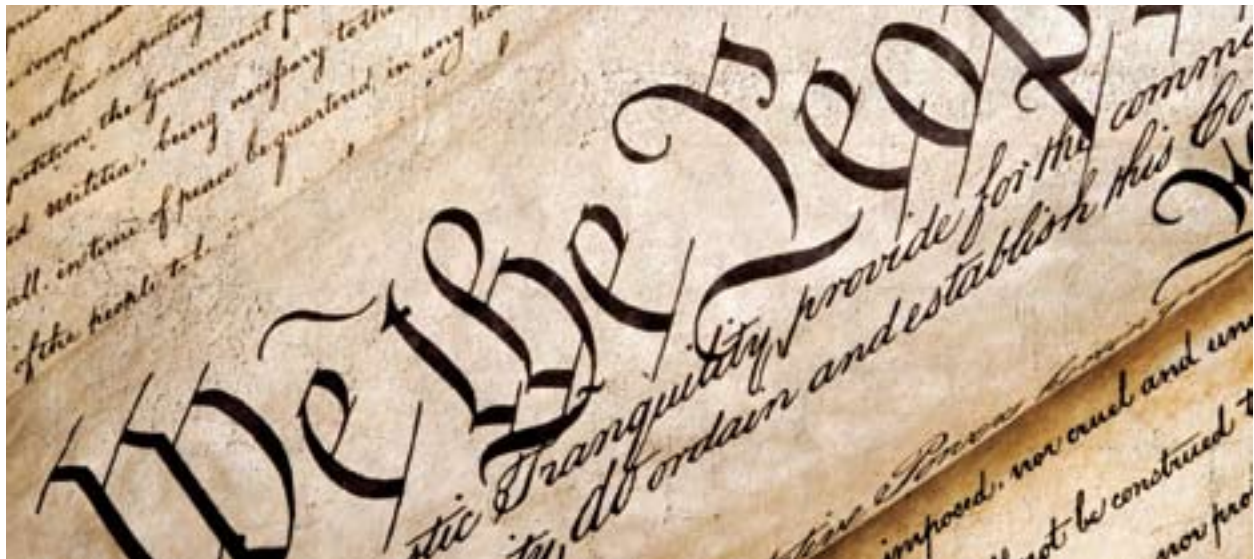 compromised
no law respecting
petition the Government for
ed militia, being necessary to the
all, in time of peace be quartered in any ho
of the people to b
We the Peop
stic Tranquility, provide for the commo
ity, do ordain and establish this Co
imposed, nor cruel and unu
not be construed t
nor pro